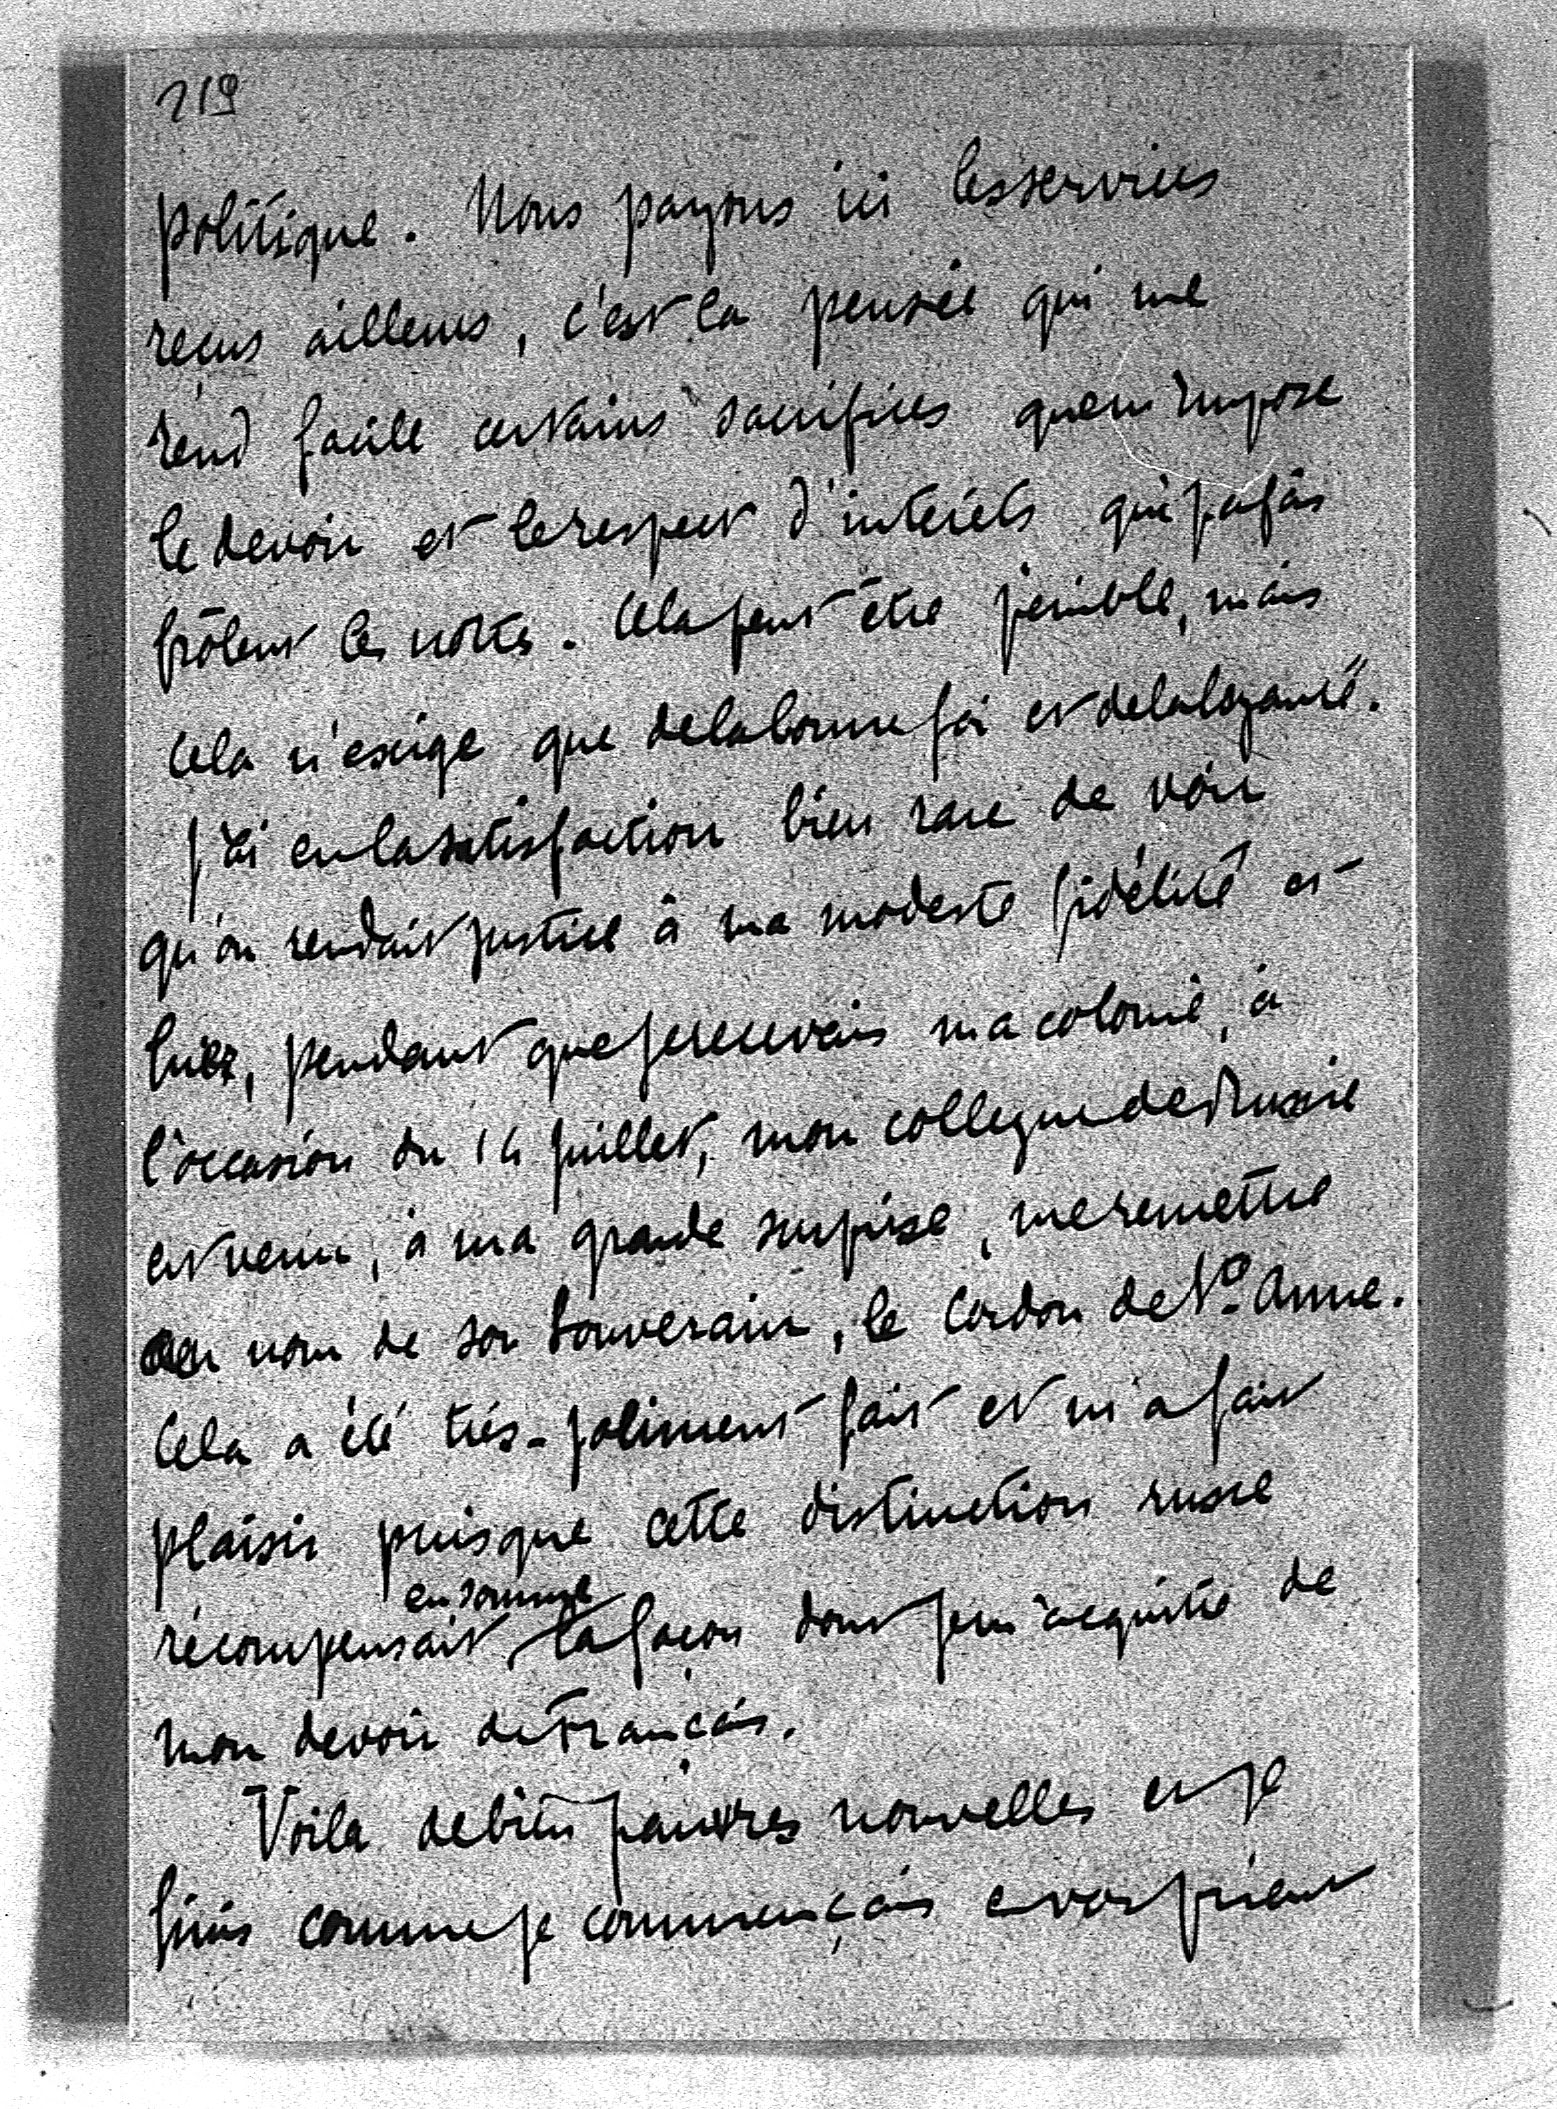 219
politique. Nous payons ici les services
recus ailleurs, c'est la pensée qui me
rend facile certains sacrifices que m'impose
le devoir et le respect d'intérêts qui parfois
frôlent les notres. Cela peut être pénible, mais
cela n'exige que de la bonne foi et de la loyauté.
J'ai eu la satisfaction bien rare de voir
qu'on rendait justice à ma modeste fidélité et
hier, pendant que je recevais ma colonie, à
l'occasion du 14 juillet, mon collegue de Russie
est venu, à ma grande surprise, me remettre
au nom de son Souverain, le Cordon de Ste Anne.
Cela a été très-joliment fait et m'a fait
plaisir puisque cette distinction russe
en somme
récompensait la façon dont je m'acquitte de
mon devoir de Français.
Voila de bien pauvres nouvelles et je
finis comme je commençais en vous priant